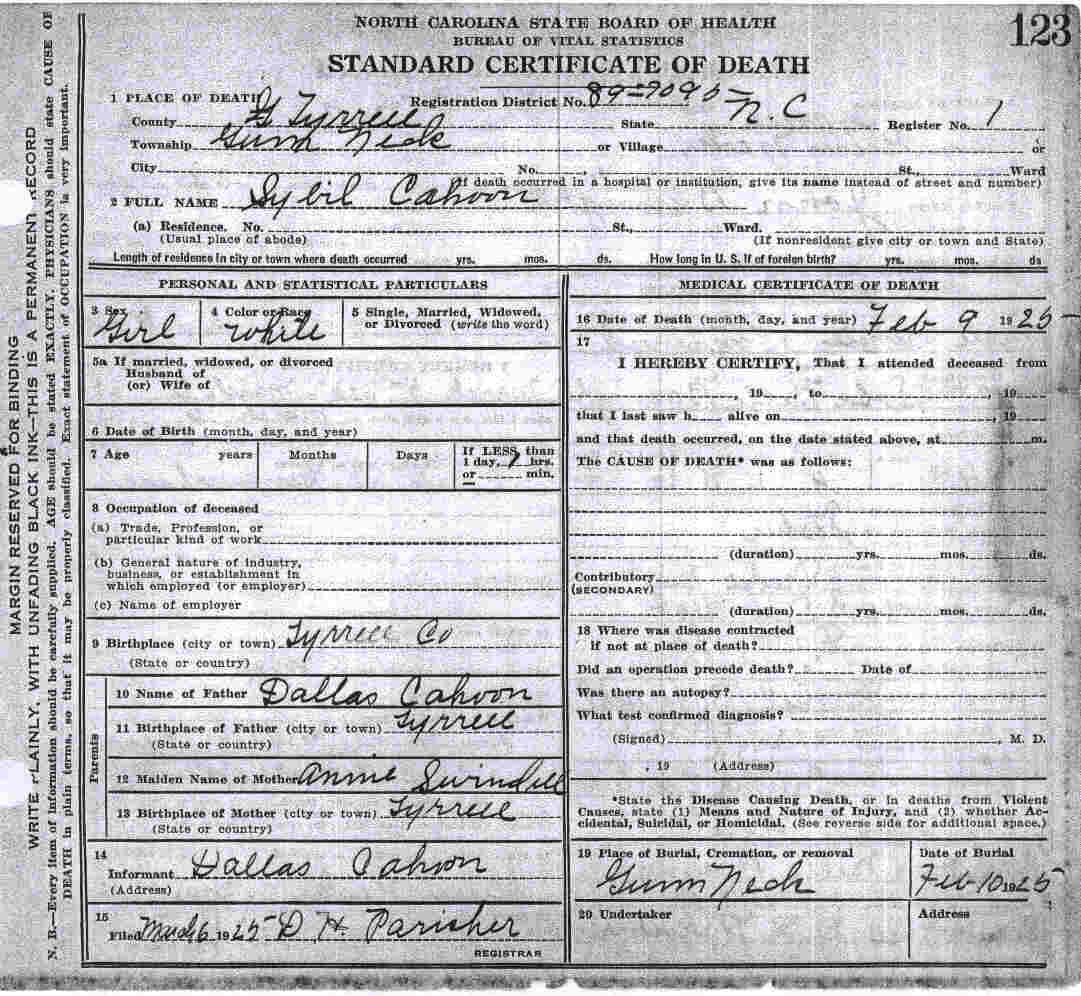 NORTH CAROLINA STATE BOARD OF HEALTH
BUREAU OF VITAL STATISTICS
STANDARD CERTIFICATE OF DEATH
123
1 PLACE OF DEATH
Registration District No. 89-7090-
County Tyrrell State N.C Register No. 1
Township Gum Neck or Village or
City No. , St., Ward
(If death occurred in a hospital or institution, give its name instead of street and number)
2 FULL NAME Sybil Cahoon
(a) Residence. No. St., Ward.
(Usual place of abode) (If nonresident give city or town and State)
Length of residence in city or town where death occurred yrs. mos. ds. How long in U. S. if of foreign birth? yrs. mos. ds
PERSONAL AND STATISTICAL PARTICULARS
3 Sex 4 Color or Race 5 Single, Married, Widowed,
or Divorced (write the word)
Girl White
5a If married, widowed, or divorced
Husband of
(or) Wife of
6 Date of Birth (month, day, and year)
7 Age years Months Days If LESS than
1 day, hrs.
or min.
8 Occupation of deceased
(a) Trade, Profession, or
particular kind of work
(b) General nature of industry,
business, or establishment in
which employed (or employer)
(c) Name of employer
9 Birthplace (city or town) Tyrrell Co
(State or country)
Parents
10 Name of Father Dallas Cahoon
11 Birthplace of Father (city or town) Tyrrell
(State or country)
12 Maiden Name of Mother Annie Swindell
13 Birthplace of Mother (city or town) Tyrrell
(State or country)
14
Informant Dallas Cahoon
(Address)
15
Filed March 6 1925 D H. Parisher
REGISTRAR
MEDICAL CERTIFICATE OF DEATH
16 Date of Death (month, day, and year) Feb 9 1925
17
I HEREBY CERTIFY, That I attended deceased from
, 19 , to , 19
that I last saw h alive on , 19
and that death occurred, on the date stated above, at m.
The CAUSE OF DEATH* was as follows:
(duration) yrs. mos. ds.
Contributory
(SECONDARY)
(duration) yrs. mos. ds.
18 Where was disease contracted
if not at place of death?
Did an operation precede death? Date of
Was there an autopsy?
What test confirmed diagnosis?
(Signed) , M. D.
, 19 (Address)
*State the Disease Causing Death, or in deaths from Violent
Causes, state (1) Means and Nature of Injury, and (2) whether Ac-
cidental, Suicidal, or Homicidal. (See reverse side for additional space.)
19 Place of Burial, Cremation, or removal Date of Burial
Gum Neck Feb 10 1925
20 Undertaker Address
MARGIN RESERVED FOR BINDING
WRITE PLAINLY, WITH UNFADING BLACK INK—THIS IS A PERMANENT RECORD
N. B.—Every item of information should be carefully supplied. AGE should be stated EXACTLY. PHYSICIANS should state CAUSE OF
DEATH in plain terms, so that it may be properly classified. Exact statement of OCCUPATION is very important.